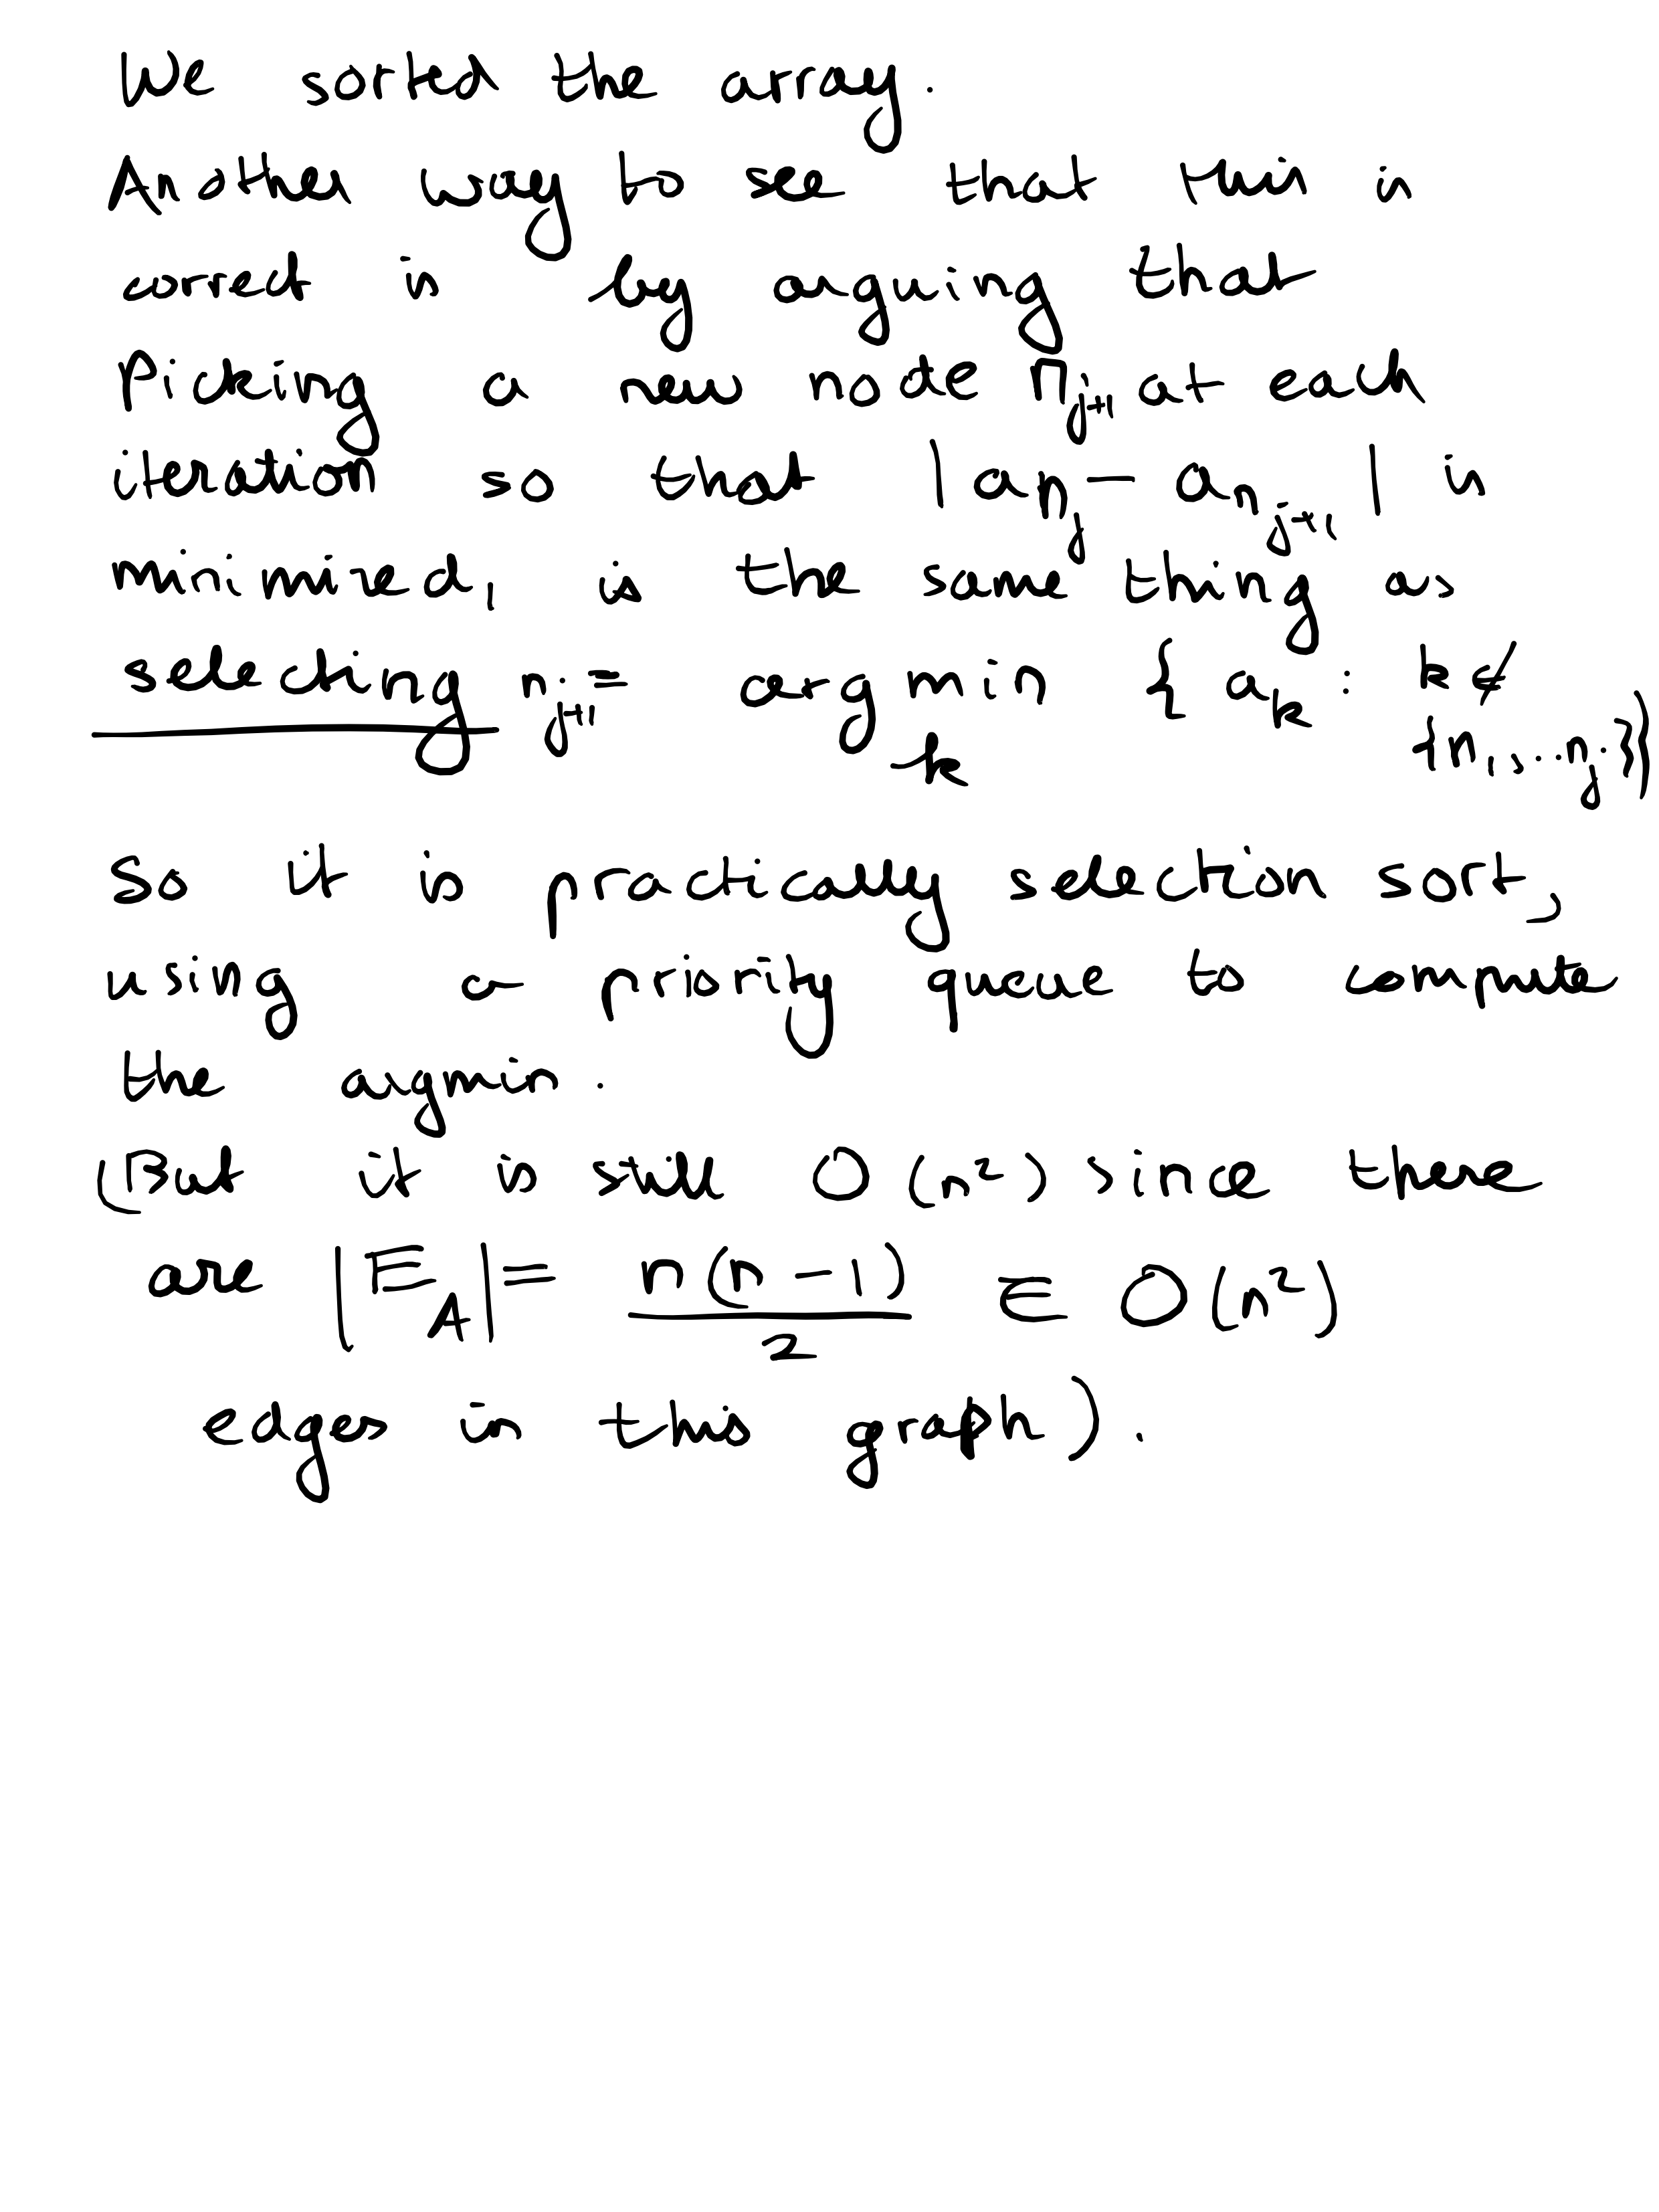 We sorted the array.
Another way to see that this is
correct is by arguing that
picking a new node n_{j+1} at each
iteration so that |a_{n_j} - a_{n_{j+1}}| is
minimized, is the same thing as
selecting n_{j+1} = arg min_k { a_k : k ∉
{n_1, ... n_j}}
So it is practically selection sort,
using a priority queue to compute
the argmin.
(But it is still O(n²) since there
are |E_A| = n(n-1)/2 ∈ O(n²)
edges in this graph).